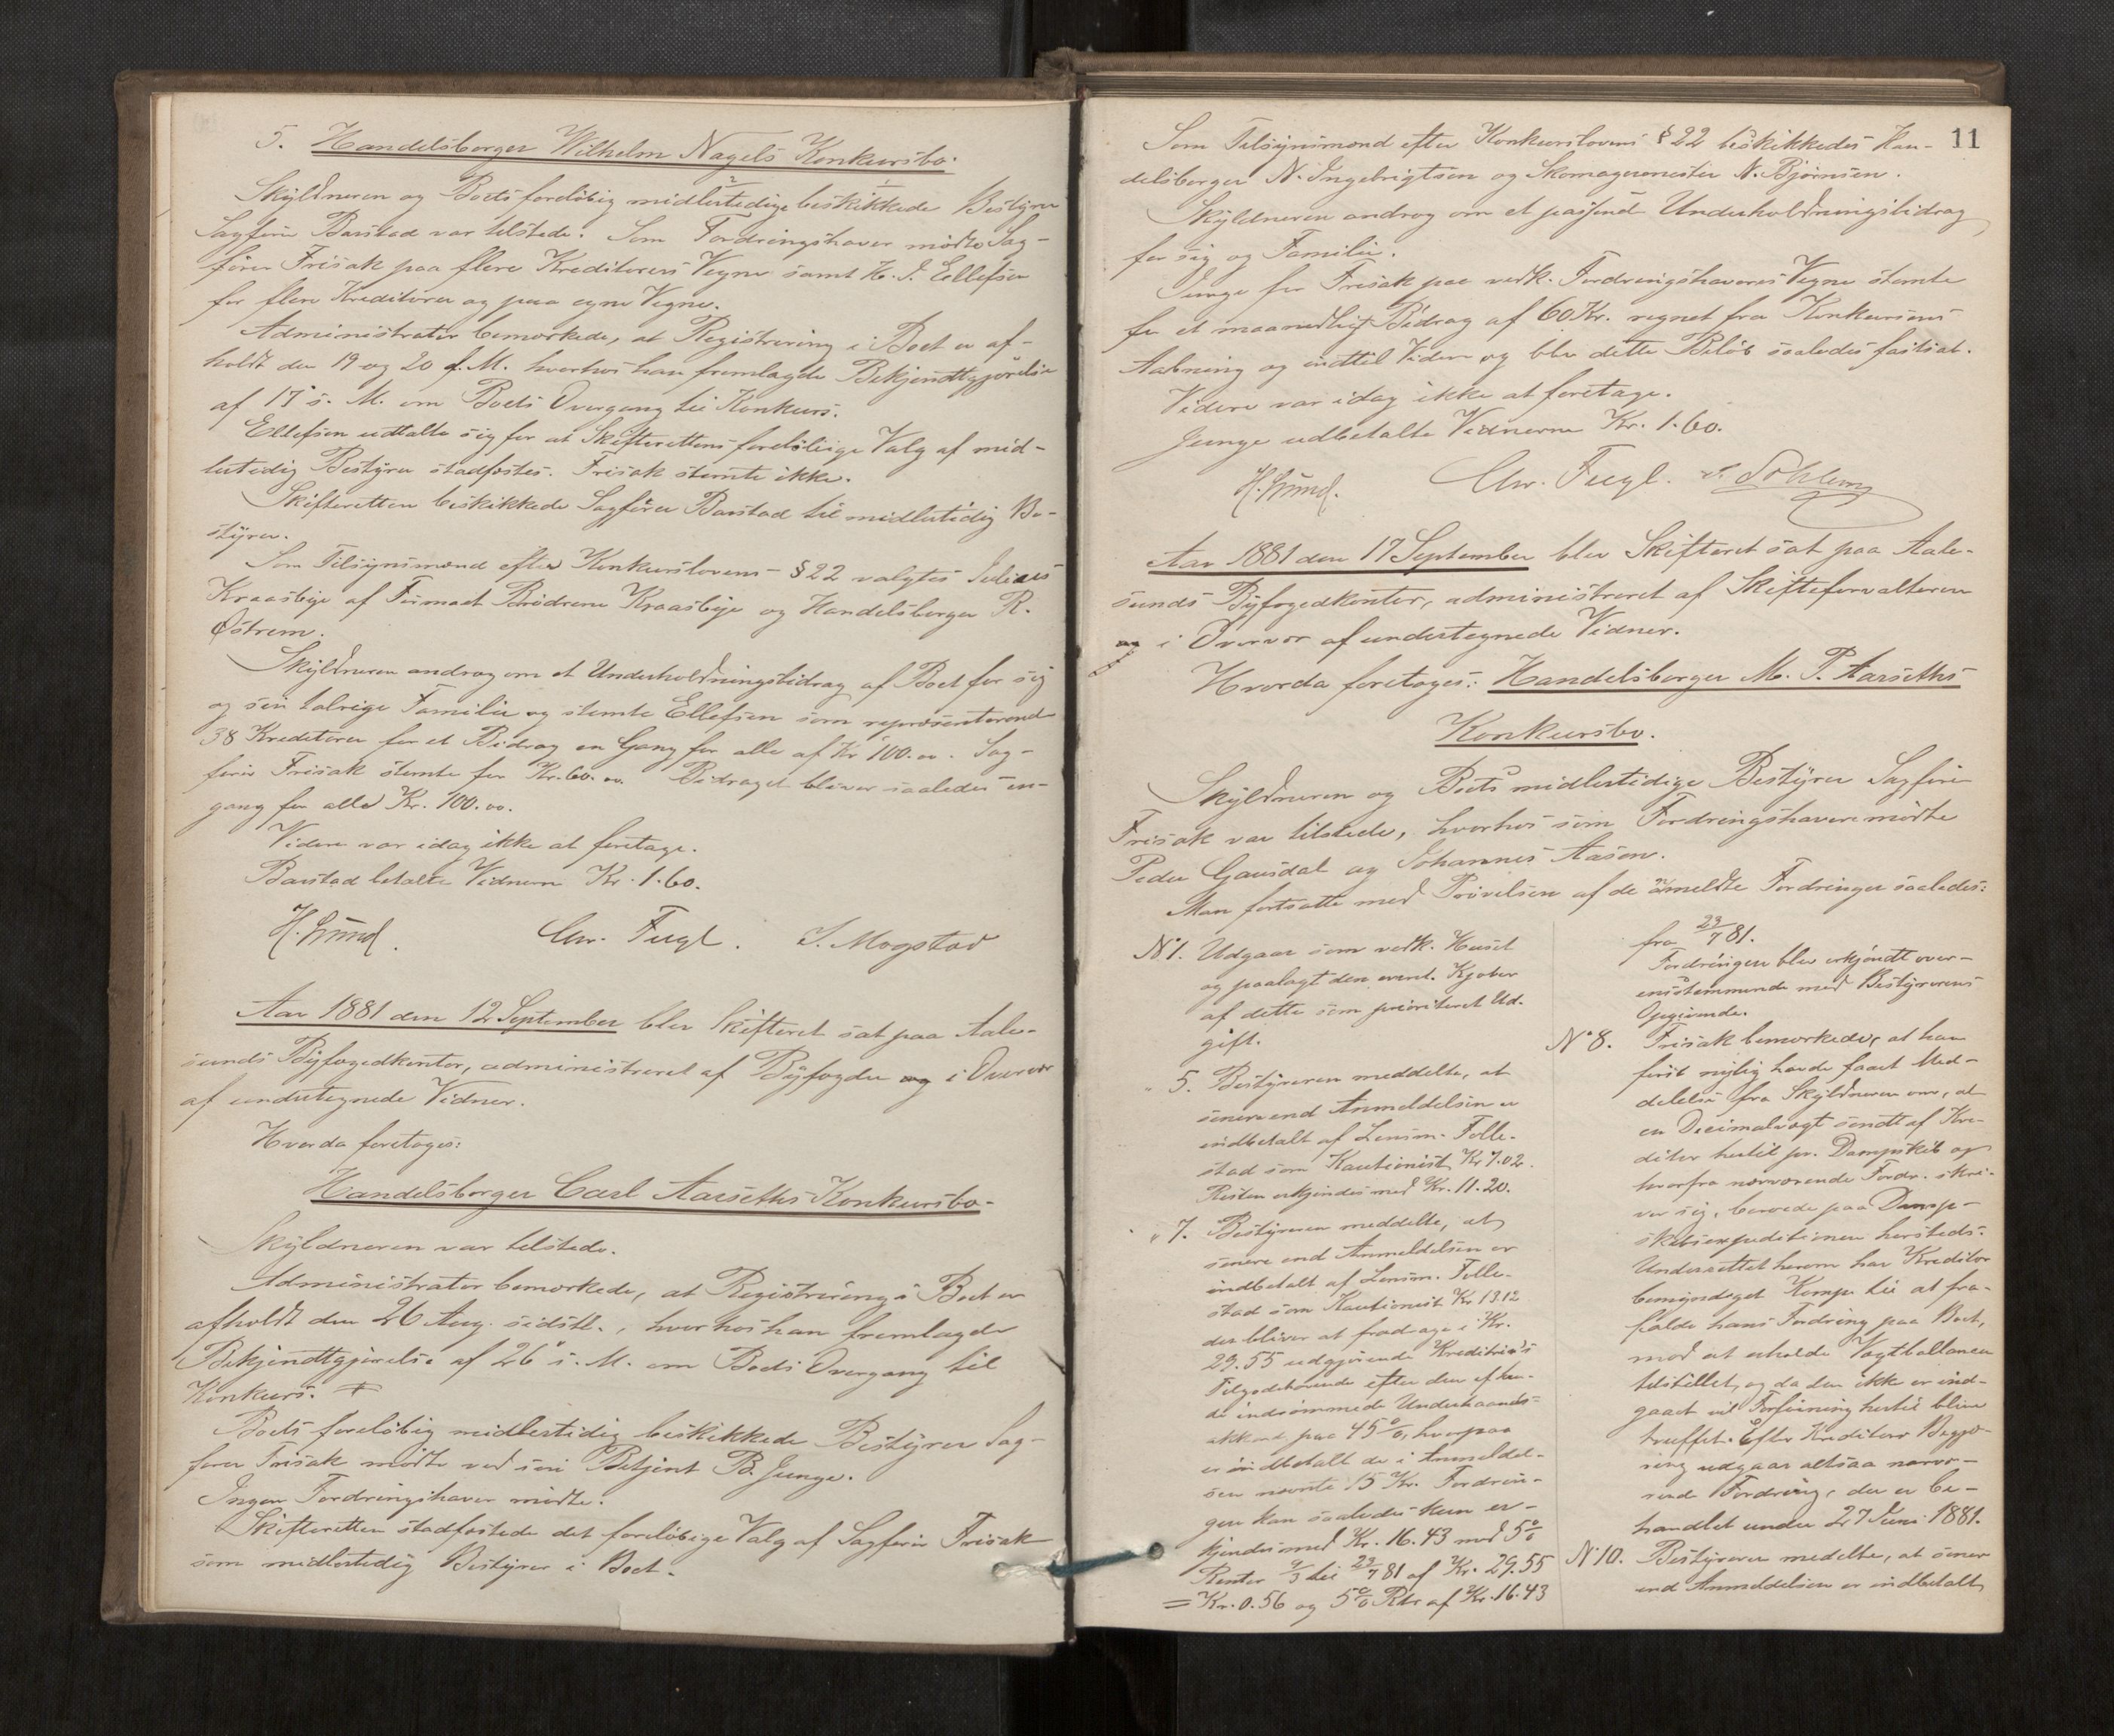 5. Handelsborger Wilhelm Nagels Konkursbo.
Skyldneren og Boets foreløbig midlertidige beskikkede Bestyrer
Sagfører Barstad var tilstede. Som Fordringshaver mødte Sag-
fører Frisak paa flere Kreditorers Vegne samt H. J. Ellefsen
for flere Kreditorer og paa egne Vegne.
Administrator bemærkede, at Registrering i Boet er af-
holdt den 19 og 20 f. M. hvorhos han fremlagde Bekjendtgjørelse
af 17 s. M. om Boets Overgang til Konkurs.
Ellefsen udtalte sig for at Skifterettens foreløbige Valg af mid-
lertidig Bestyrer stadfæstes. Frisak stemte ikke.
Skifteretten beskikkede Sagfører Barstad til midlertidig Be-
styrer.
Som Tilsynsmænd efter Konkurslovens §22 valgtes Julius
Kraasbye af Firmaet Brødrene Kraasbye og Handelsborger R.
Østrem.
Skyldneren androg om et Underholdningsbidrag af Boet for sig
og sin talrige Familie og stemte Ellefsen som repræsenterende
38 Kreditorer for et Bidrag en Gang for alle af Kr 100.00. Sag-
fører Frisak stemte for Kr. 60.00. Bidraget bliver saaledes en-
gang for alle Kr. 100.00.
Videre var idag ikke at foretage.
Barstad betalte Vidnerne Kr. 1.60.
Chr. Fugl. S. Mogstad
Aar 1881 den 12 September blev Skifteret sat paa Aale-
sunds Byfogedkontor, administreret af Byfogden og i Overvær
af undertegnede Vidner.
Hvorda foretoges:
Handelsborger Carl Aarseths Konkursbo.
Skyldneren var tilstede.
Administrator bemærkede, at Registrering i Boet er
afholdt den 26 Aug. sidstl., hvorhos han fremlagde
Bekjendtgjørelse af 26 s. M. om Boets Overgang til
Konkurs.
Boets foreløbig midlertidig beskikkede Bestyrer Sag-
fører Frisak mødte ved sin Betjent B. Junge.
Ingen Fordringshaver mødte.
Skifteretten stadfæstede det foreløbige Valg af Sagfører Frisak
som midlertidig Bestyrer i Boet.
11
Som Tilsynsmænd efter Konkurslovens §22 beskikkedes Han-
delsborger N. Ingebrigtsen og Skomagermester N. Bjørnsen.
Skyldneren androg om et passende Underholdningsbidrag
for sig og Familie.
Junge for Frisak paa vedk. Fordringshaveres Vegne stemte
for et maanedligt Bidrag af 60 Kr. regnet fra Konkursens
Aabning og indtil Videre og blev dette Beløb saaledes fastsat.
Videre var idag ikke at foretage.
Junge udbetalte Vidnerne Kr. 1.60.
Chr. Fugl.
Aar 1881 den 17 September blev Skifteret sat paa Aale-
sunds Byfogedkontor, administreret af Skifteforvalteren
og i Overvær af undertegnede Vidner.
Hvorda foretoges: Handelsborger M. P. Aarseths
Konkursbo.
Skyldneren og Boets midlertidige Bestyrer Sagfører
Frisak var tilstede, hvorhos som Fordringshavere mødte
Peder Gausdal og Johannes Aasen.
Man fortsatte med Prøvelsen af de anmeldte Fordringer saaledes:
No 1. Udgaar som vedk. Huset
og paalagt den event. Kjøber
af dette som prioriteret Ud-
gift.
" 5. Bestyreren meddelte, at
senere end Anmeldelsen er
indbetalt af Lensm. Felle-
stad som Kautionist Kr 7.02.
Resten erkjendes med Kr. 11.20.
" 7. Bestyreren meddelte, at
senere end Anmeldelsen er
indbetalt af Lensm. Felle-
stad som Kautionist Kr 13.12
der bliver at fradrage i Kr.
29.55 udgjørende Kreditors
Tilgodehavende efter den af ham
indrømmede Underhaands-
akkord paa 45%, hvorpaa
er indbetalt de i Anmeldel-
sen nævnte 15 Kr. Fordrin-
gen kan saaledes kun er-
kjendes med Kr. 16.43 med 5%
Renter til 23/7 81 af Kr. 29.55
= Kr. 0.56 og 5% Rtr af Kr. 16.43
fra 23/7 81.
Fordringen blev erkjendt over-
ensstemmende med Bestyrerens
Opgivende.
No 8. Frisak bemærkede, at han
først nylig havde faaet Med-
delelse fra Skyldneren om, at
en Decimalvægt sendt af Kre-
ditor hertil pr. Dampskib og
hvorfra nærværende Fordr. skri-
ver sig, beroede paa Damp-
skibsexpeditionen hersteds.
Underrettet herom har Kreditor
bemyndiget Komp. til at fra-
falde hans Fordring paa Boet,
mod at erholde Vægtballancen
tilstillet, og da den ikke er ind-
gaaet vil Forføining hertil blive
truffet. Efter Kreditors Begjæ-
ring udgaar altsaa nærvæ-
rende Fordring, der er be-
handlet under 27 Juni 1881.
No 10. Bestyreren meddelte, at senere
end Anmeldelsen er indbetalt